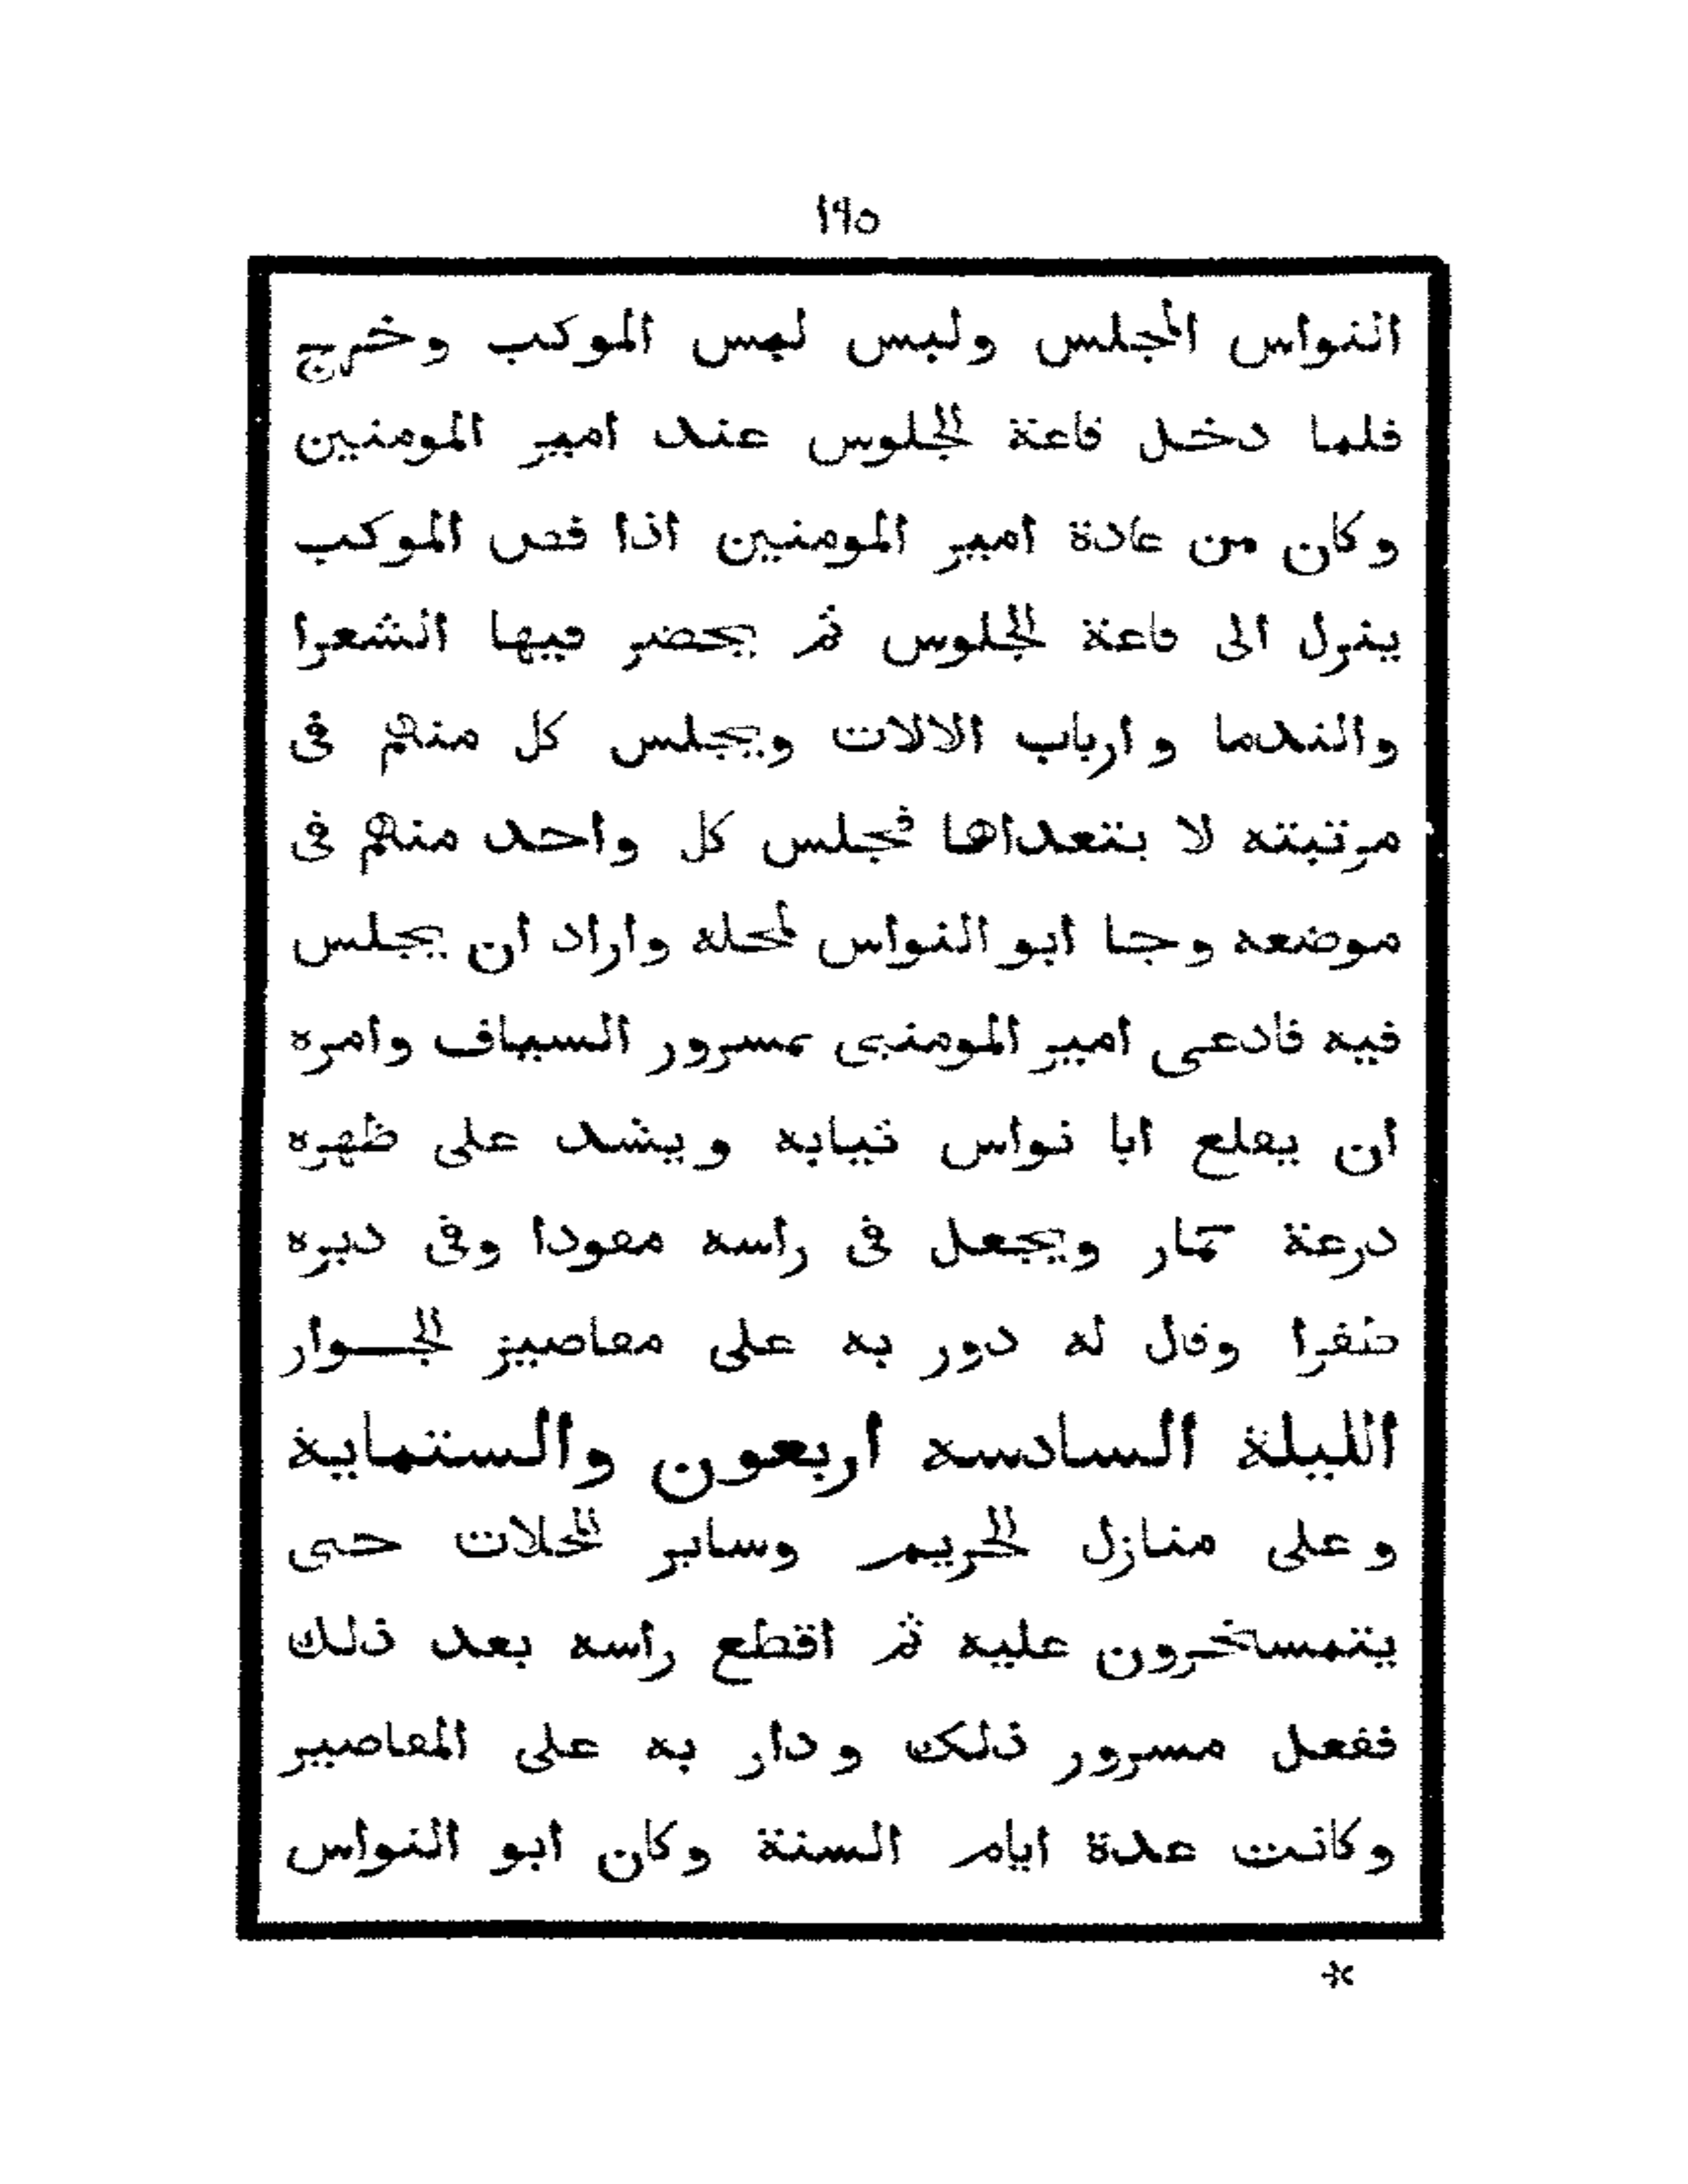 ١٩٥
النواس المجلس ولبس لبس الموكب وخرج
فلما دخل قاعة الجلوس عند امير المومنين
وكان من عادة امير المومنين اذا فص الموكب
ينزل الى قاعة الجلوس ثم يحضر فيها الشعرا
والندما وارباب الالات ويجلس كل منهم فى
مرتبته لا يتعداها فجلس كل واحد منهم فى
موضعه وجا ابو النواس لمحله واراد ان يجلس
فيه فادعى امير المومنين بمسرور السياف وامره
ان يقلع ابا نواس ثيابه ويشد على ظهره
درعة حمار ويجعل فى راسه مقودا وفى دبره
طفرا وقال له دور به على مقاصير الجوار
الليلة السادسه اربعون والستماية
وعلى منازل الحريم وساير المحلات حتى
يتمسخرون عليه ثم اقطع راسه بعد ذلك
ففعل مسرور ذلك ودار به على المقاصير
وكانت عدة ايام السنة وكان ابو النواس
*